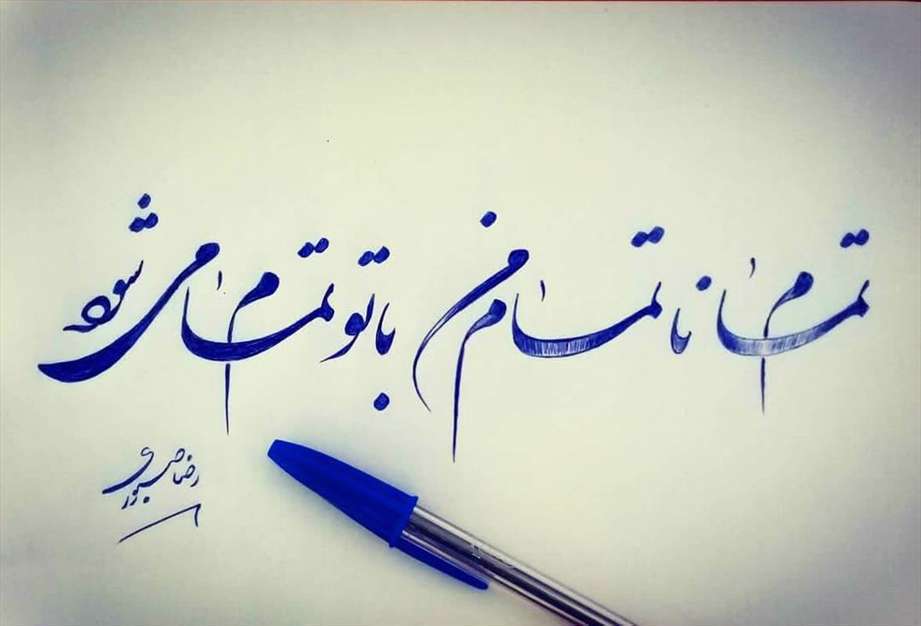 تمام ناتمام من با تو تمام می شود
رضا صبوری